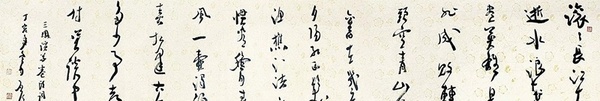 滚滚长江
逝水浪花
尽英雄是
非成败转
头空青山
旧在几
夕阳红
渔樵江渚
惯看秋月
风一壶浊
喜相逢古今
多少事都
付笑谈中
三国演义卷首词
丁亥年